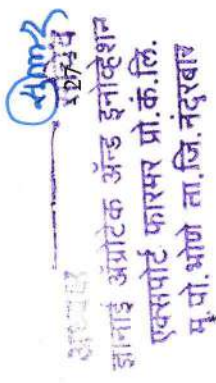 अध्यक्ष
ज्ञानाई अॅग्रोटेक अ‍ॅन्ड इनोव्हेशन
एक्सपोर्ट फारमर प्रो.कं.लि.
मु.पो.भोणे ता.जि.नंदुरबार